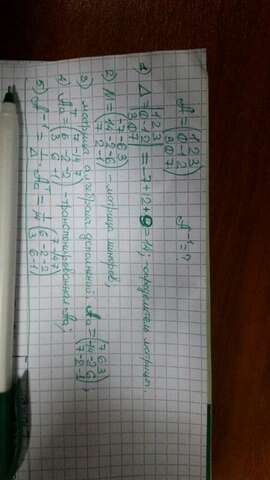 A = (1 2 3
0 -1 2
3 0 7) A⁻¹ = ?
1) Δ = |1 2 3
0 -1 2
3 0 7| = -7+12+9=14; определитель матрицы.
2) M = (-7 -6 3
14 -2 -6
7 2 -1) - матрица миноров,
3) матрица дополнений. Aa = (-7 6 3
-14 -2 6
7 -2 -1);
4) Aaᵀ = (-7 -14 7
6 -2 -2
3 6 -1) - транспонированная Aa;
5) A⁻¹ = 1/Δ · Aaᵀ = 1/14 (-7 -14 7
6 -2 -2
3 6 -1)